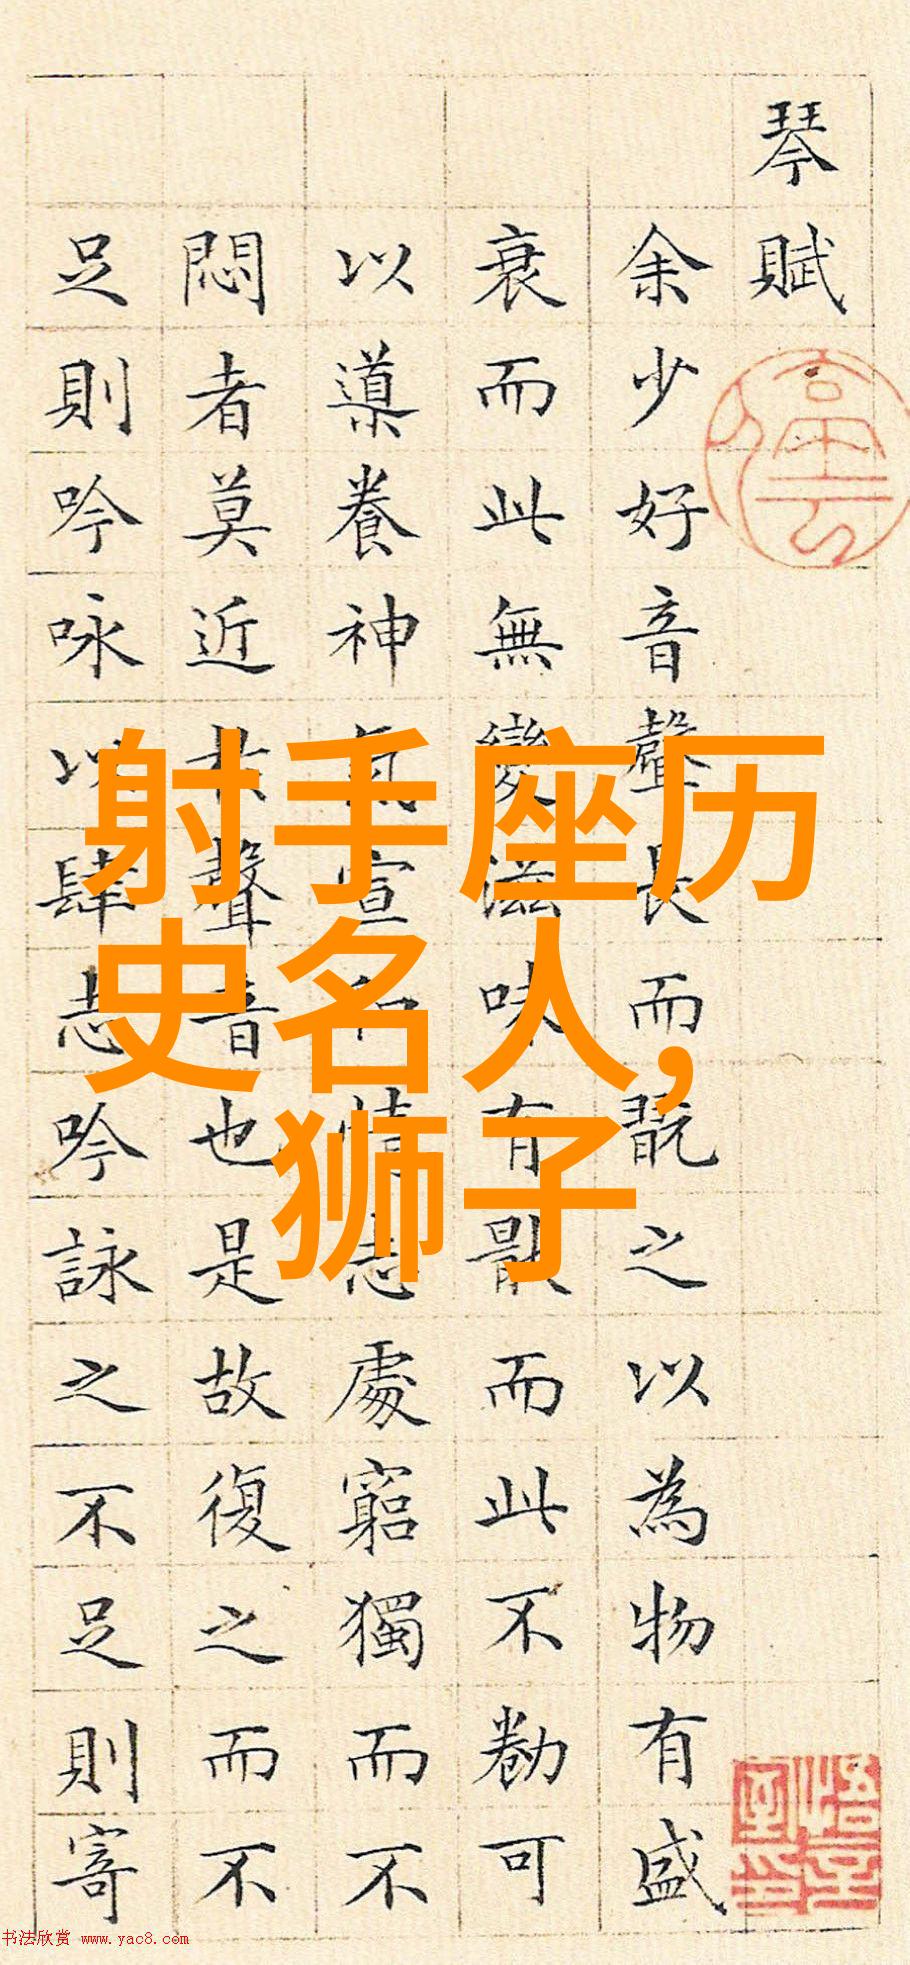 琴賦
余少好音聲長而翫之以為物有盛
衰而此無變滋味有猒而此不勌可
以導養神氣宣和情志處窮獨而不
悶者莫近於聲音也是故復之而不
足則吟咏以肆志吟詠之不足則寄
射手座历
史名人,
狮子
悟言室印
书法欣赏 www.yac8.com